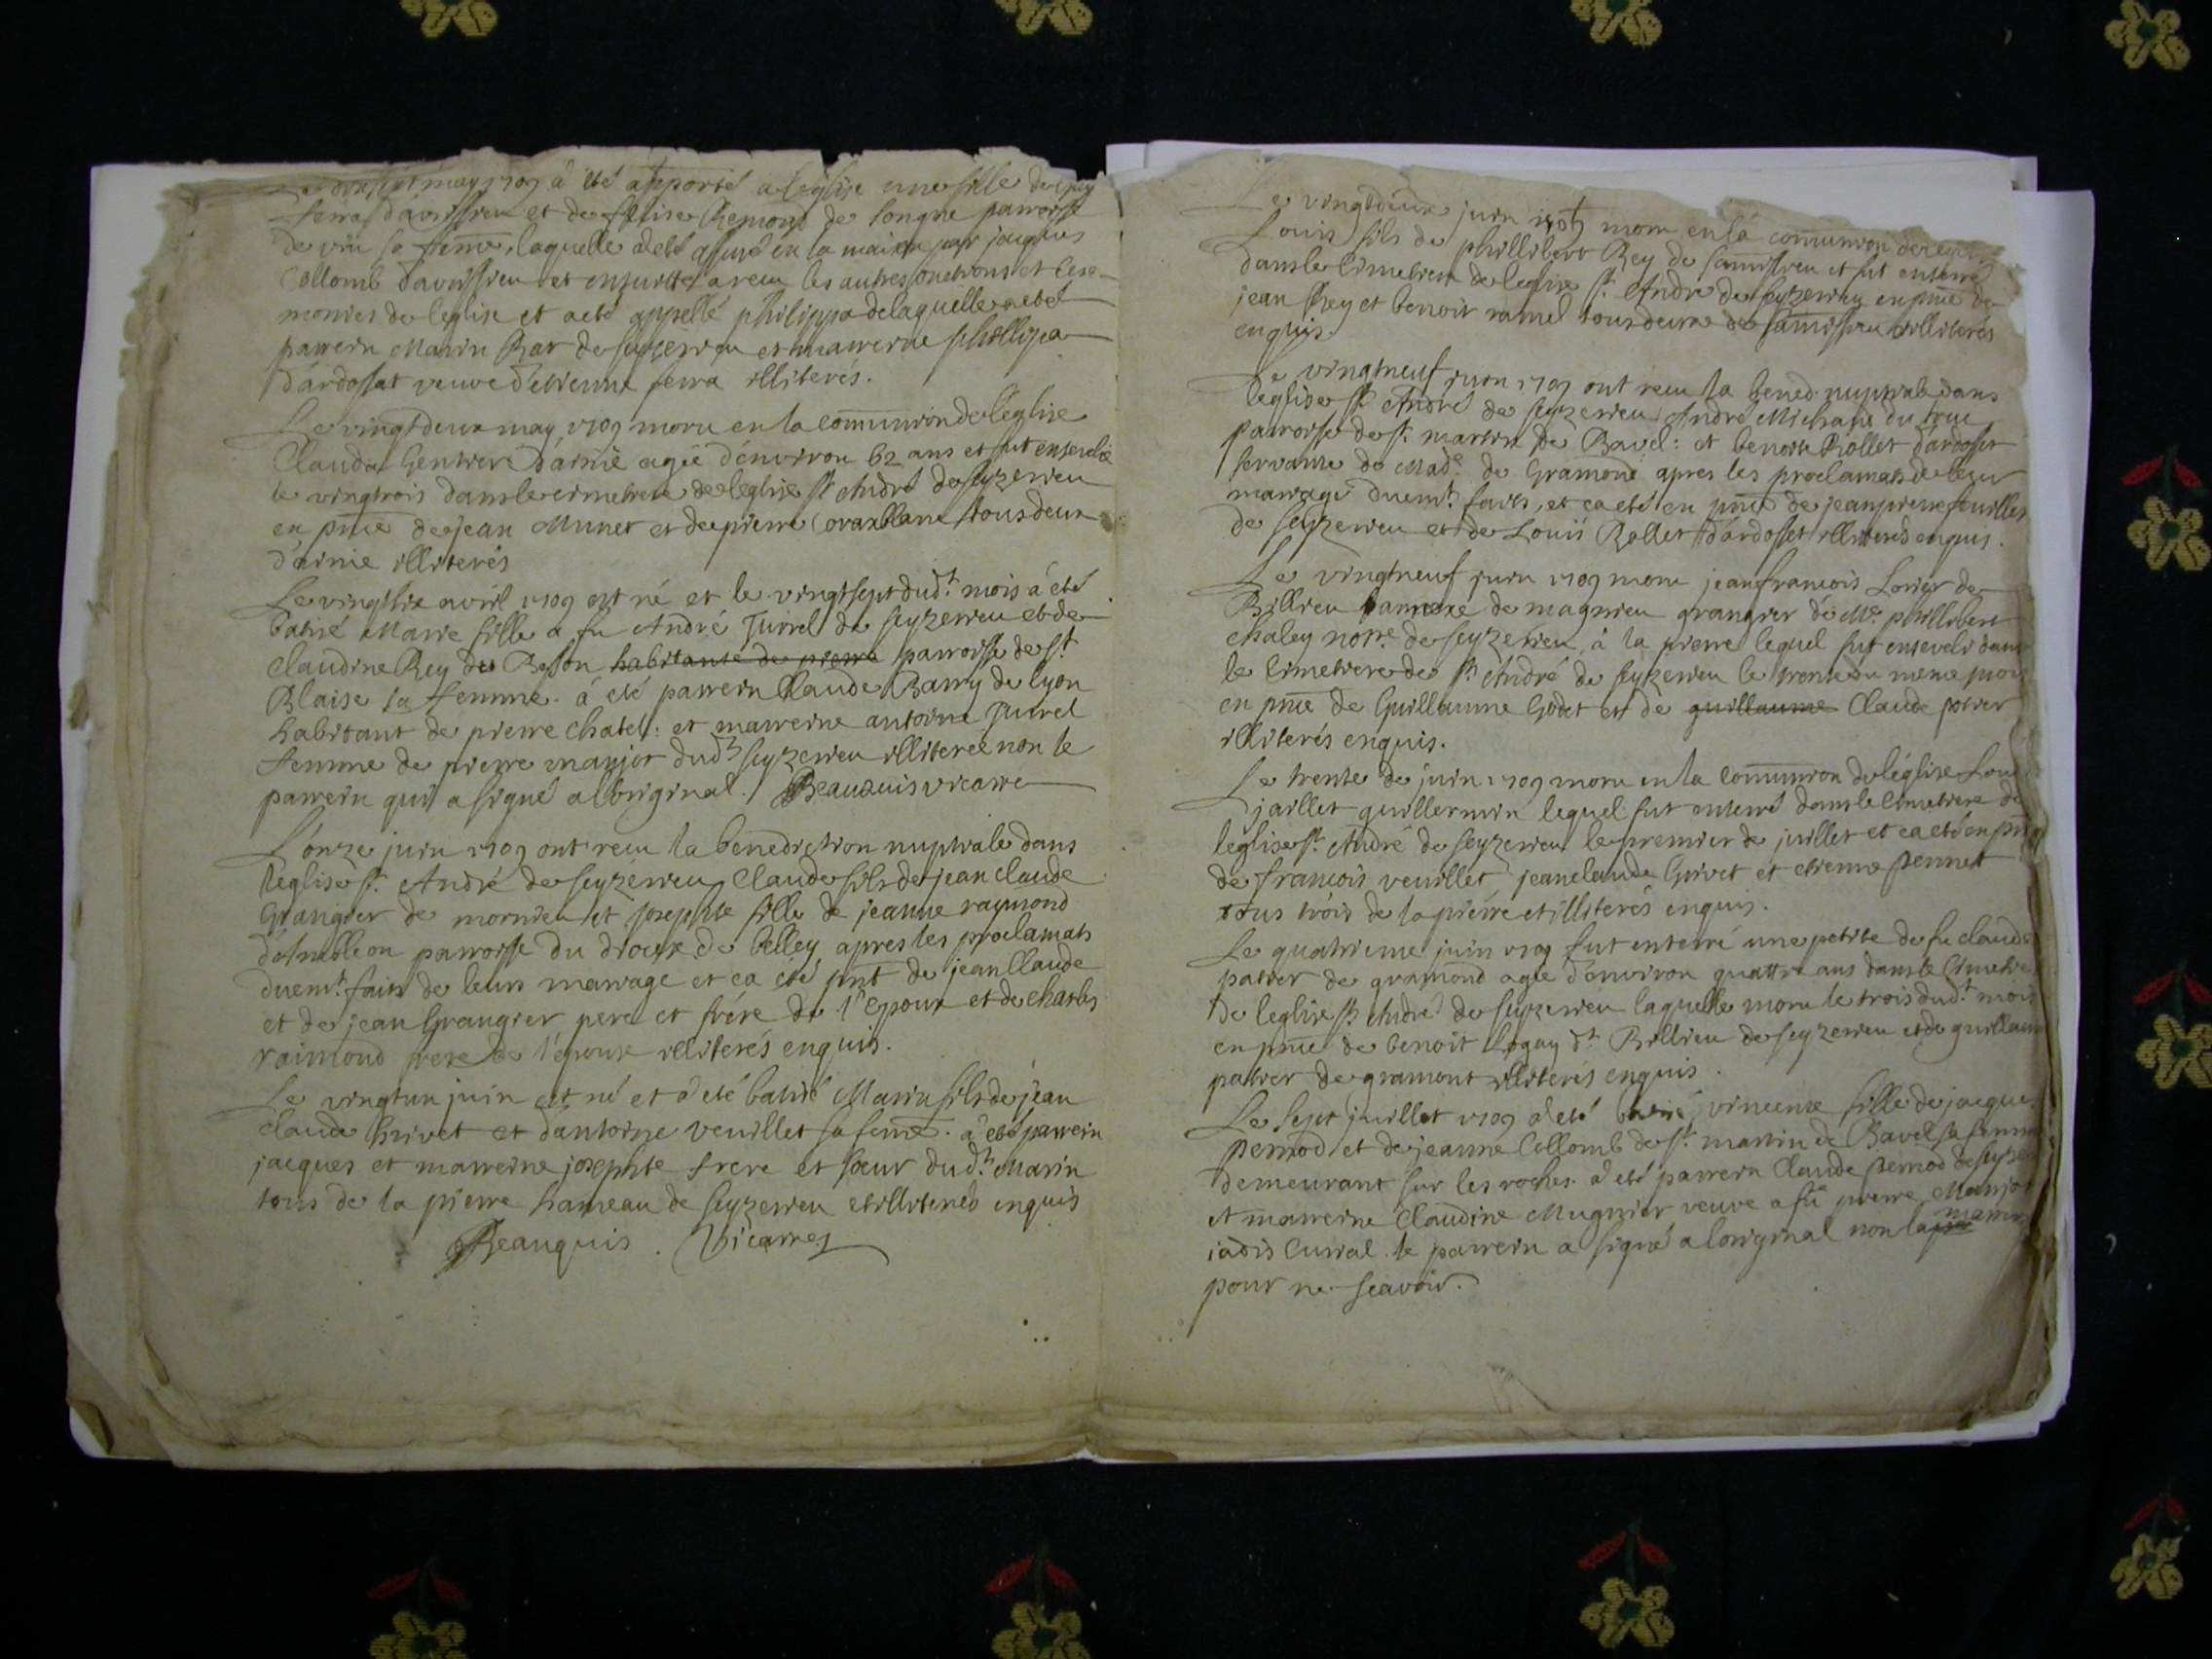 Le dixsept may 1709 a été apporté a leglise une fille de
ferra davrissieu et de Remond de songne parroisse
de viu sa femme, laquelle a eté assuré en la maison par jacques
Collomb davrissieu et ensuitte a receu les autres onctions et cere-
monies de leglise et a eté appellé philippa de laquelle a eté
parrein Marin Rar de seyzerieu et marrerine phillipa
dardosset veuve d'etienne ferra illiterés.
Le vingtdeux may 1709 moru en la communion de l'église
Claudia Gentrere d'ainie agée d'environ 62 ans et fut ensevelie
le vingtrois dans le cimetiere de leglise st André de seyzerieu
en pnce de jean Munet et de pierre tous deux
d'ainie illiterés
Le vingtsix avril 1709 est né et le vingtsept dudt mois a été
batisé Marie fille a fu André Jurrel de seyzerieu et de
Claudine Rey de Beson habitante de pierre parroisse de st
Blaise sa femme. a eté parrein Claude Barry de lyon
habitant de pierre chatel: et marreine antoine Jurrel
femme de pierre manjot dudt seyzerieu illiteree non le
parrein qui a signé a l'original. Beauquis vicaire
L'onze juin 1709 ont receu la benediction nuptiale dans
leglise st. André de seyzérieu Claude fils de jean claude
Grangier de mornieu et josephte fille de jeanne raymond
parroisse du diocese de belley apres les proclamats
duemt. faits de leurs mariage et ca été pnt de jean Claude
et de jean Grangier pere et frére de l'epoux et de charles
raimond frere de l'épouse illiterés enquis.
Le vingtun juin est né et a eté batisé Marin fils de jean
claude Grivet et d'antoine veuillet sa feme. a eté parrein
jacques et marreine josephte frere et soeur dudt. Marin
tous de la pierre hameau de seyzerieu etilliterés enquis
Beauquis. Vicaire
Le vingtdeux juin 1709 moru en la communion de leglise
Louis fils de phillibert Rey de samissieu et fut enterré
dans le Cimetiere de leglise st. André de seyzerieu en pnce de
jean Rey et benoit ramel tous deux de samissieu illiterés
enquis
Le vingtneuf juin 1709 ont receu la bened. nuptiale dans
leglise st André de seyzerieu André Michaud du truc
parroisse de st. martin de Bavel: et benoite Rollet dardosset
servante de Made. de Gramond apres les proclamats de leur
mariage duemt. faits, et ca eté en pnce de jeanpierre feuillet
de seyzerieu et de Louis Rollet dardosset illiterés enquis.
Le vingtneuf juin 1709 moru jeanfrancois Lorier de
Billieu de magnieu grangier de Me. phillibert
Chaley nore. de seyzerieu, à la pierre lequel fut enseveli dans
le Cimetiere de st André de seyzerieu le trente du meme mois
en pnce de Guillaume Godet et de guillaume Claude potier
illiterés enquis.
Le trente de juin 1709 moru en la communion de léglise Loui
jaillet guillermin lequel fut enterré dans le Cimetiere de
leglise st. André de seyzerieu le premier de juillet et ca eté en pnce
de francois veuillet, jeanclaude Grivet et etienne pennet
tous trois de la piérre et illiterés enquis.
Le quatrieme juin 1709 fut enterré une petite de fu claude
pattier de gramond agée denviron quattre ans dans le Cimetiere
de leglise st. André de seyzerieu laquelle moru le trois dudt mois
en pnce de benoit Logay dt Billieu de seyzerieu et de guillaume
pattier de gramont illiterés enquis.
Le sept juillet 1709 a eté batisé vincente fille de jacques
pernod et de jeanne Collomb de st. martin de Bavel sa femme
demeurant sur les roches. a eté parrein Claude pernod de seyze
et marreine Claudine Mugnier veuve a fu pierre Manjot
jadis Curial. le parrein a signé a loriginal non la marre
pour ne scavoir.